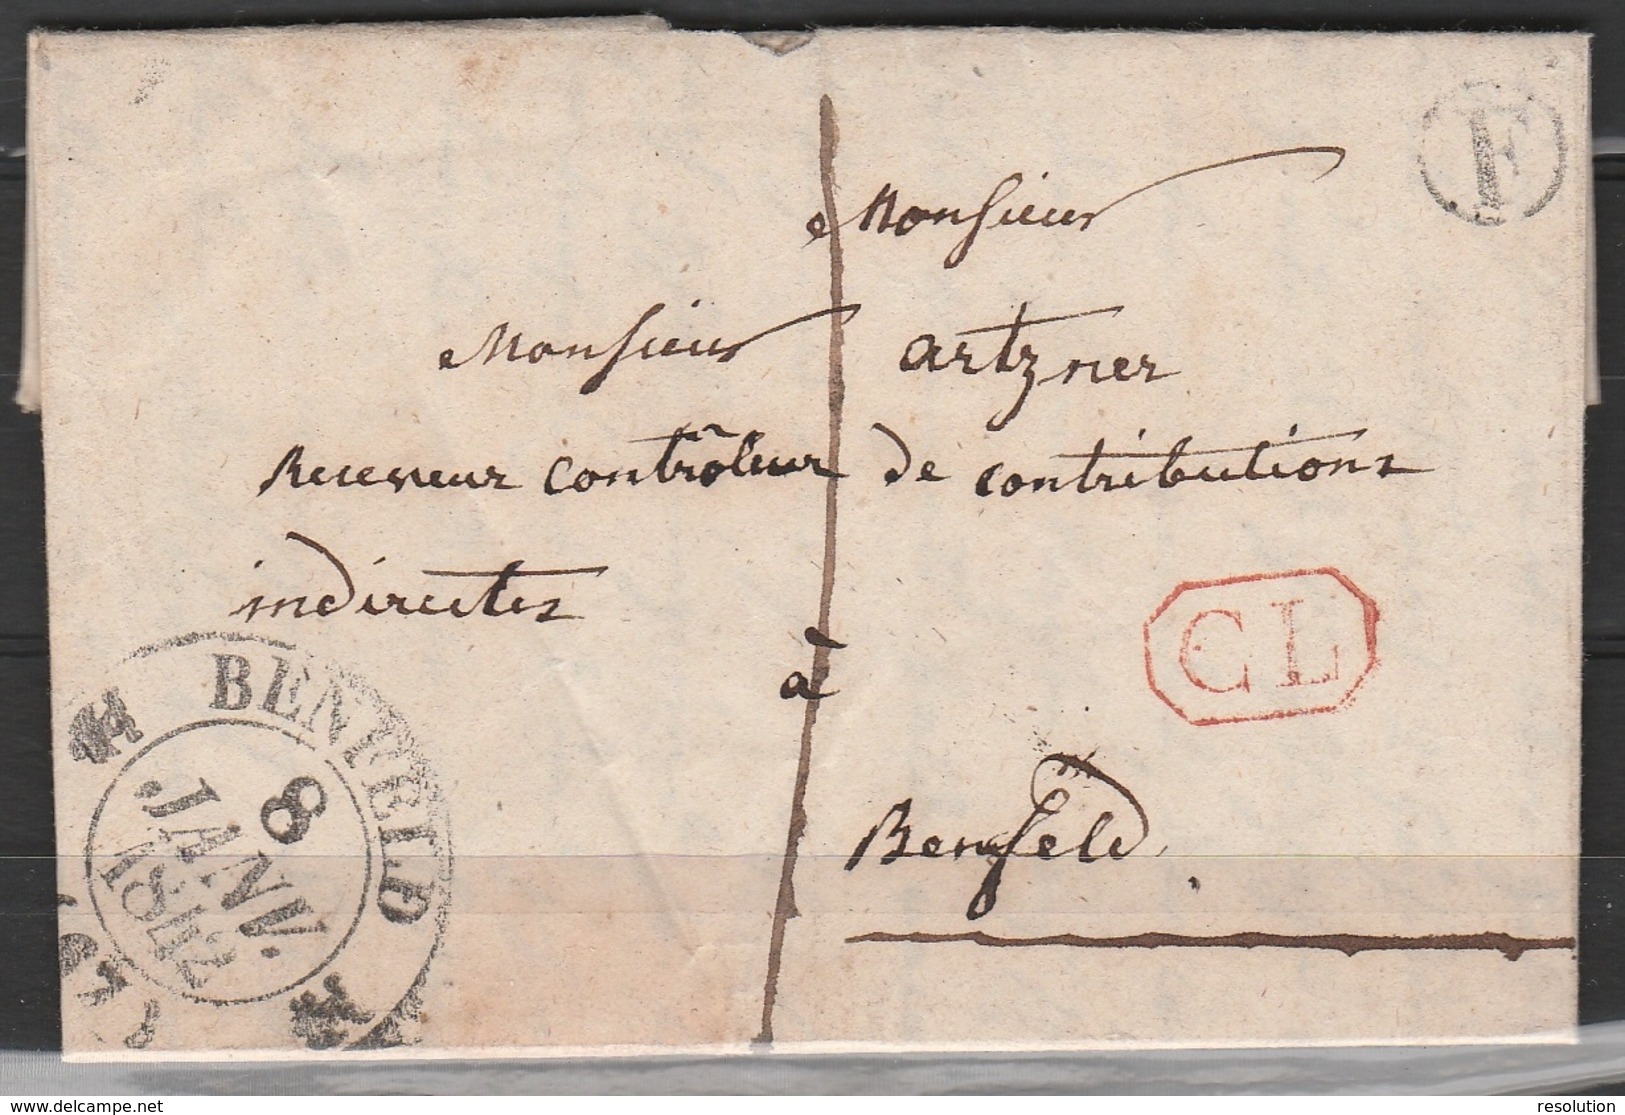 F
Monsieur
Monsieur artzner
Receveur contrôleur de contributions
indirectes
à
CL
Benfeld.
BENFELD
8
JANV.
1842
delcampe.net
resolution